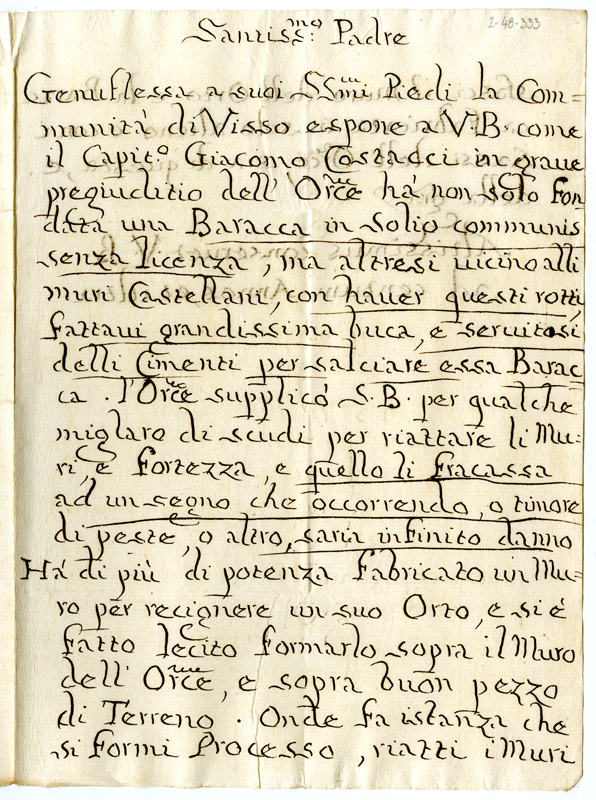 2-48-333
Santiss:mo Padre
Genuflessa a suoi SSmi Piedi la Com=
munità di Visso espone a V·B· come
il Capit.o Giacomo Costacci in graue
pregiuditio dell' Orce há non solo fon
data una Baracca in solio communis
senza licenza, ma altresi uicino alli
muri Castellani, con hauer questi rotti,
fattaui grandissima buca, e seruitosi
delli Cimenti per salciare essa Barac
ca . l'Orce supplicó S·B· per qualche
miglaro di scudi per riattare li Mu=
ri, e fortezza, e quello li fracassa
ad un segno che occorrendo, o timore
di peste, o altro, saria infinito danno
Há di più di potenza fabricato un Mu=
ro per recignere un suo Orto, e si é
fatto lecito formarlo sopra il Muro
dell' Orce, e sopra buon pezzo
di Terreno . Onde fa istanza che
si formi Processo, riatti i Muri